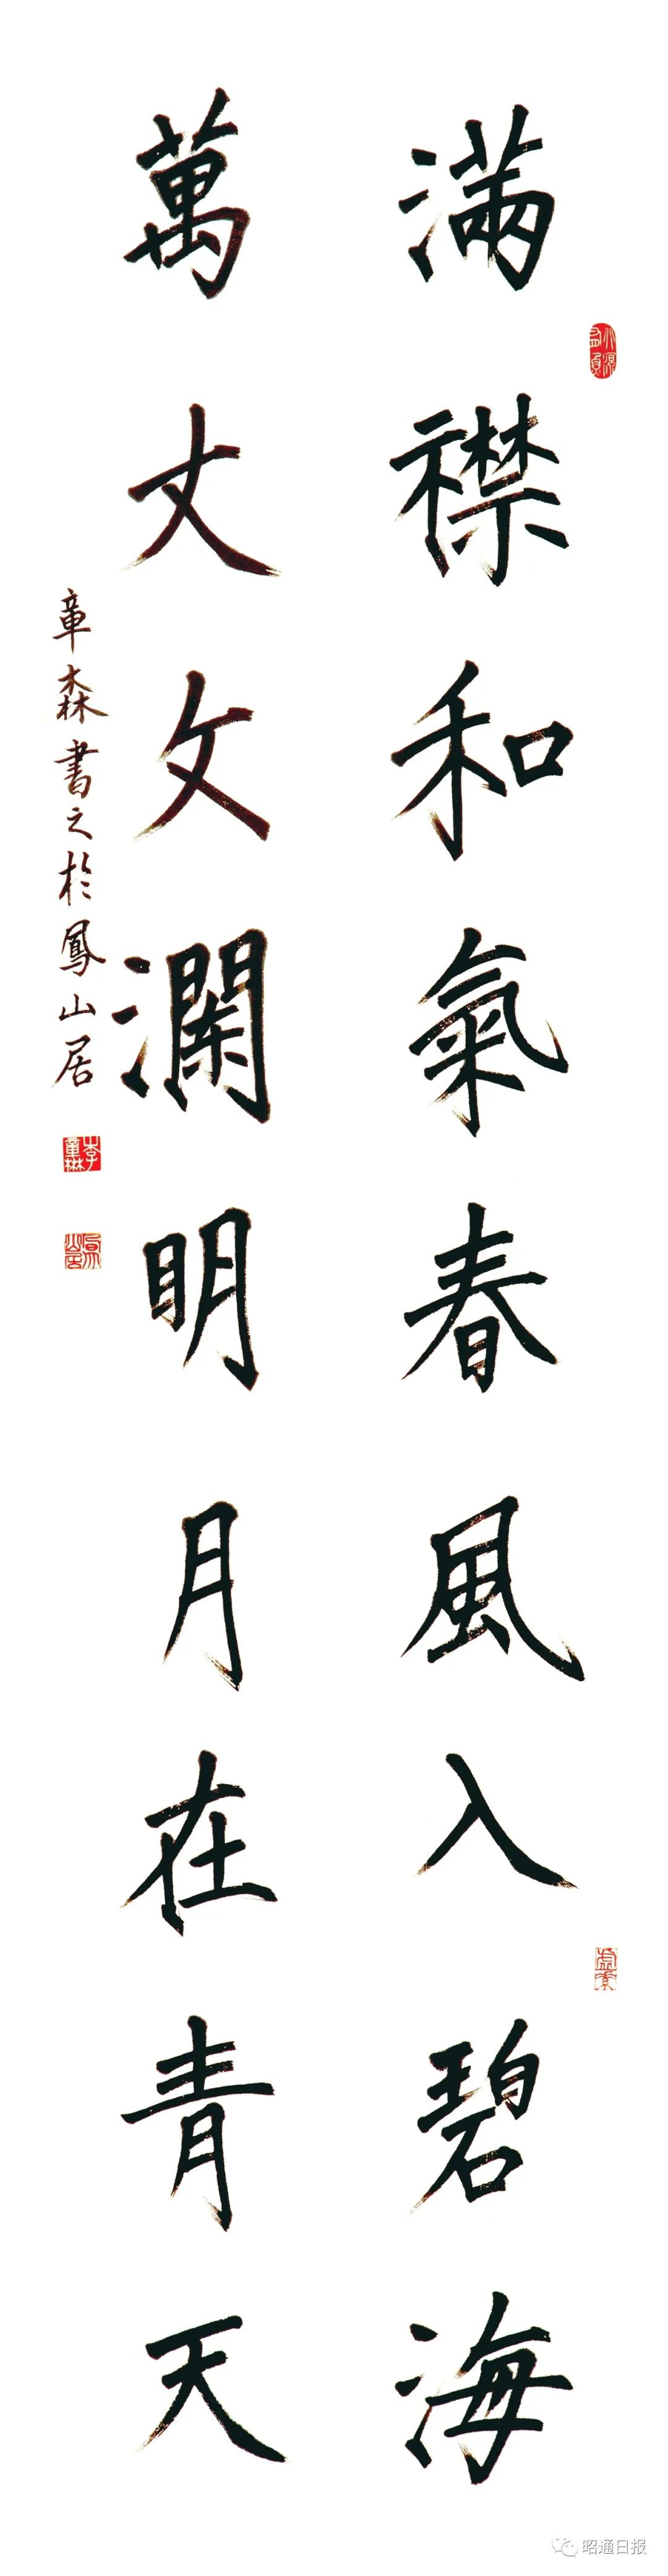 满襟和氣春風入碧海
萬丈文瀾明月在青天
章森書之於鳳山居
李章森
昭通日报